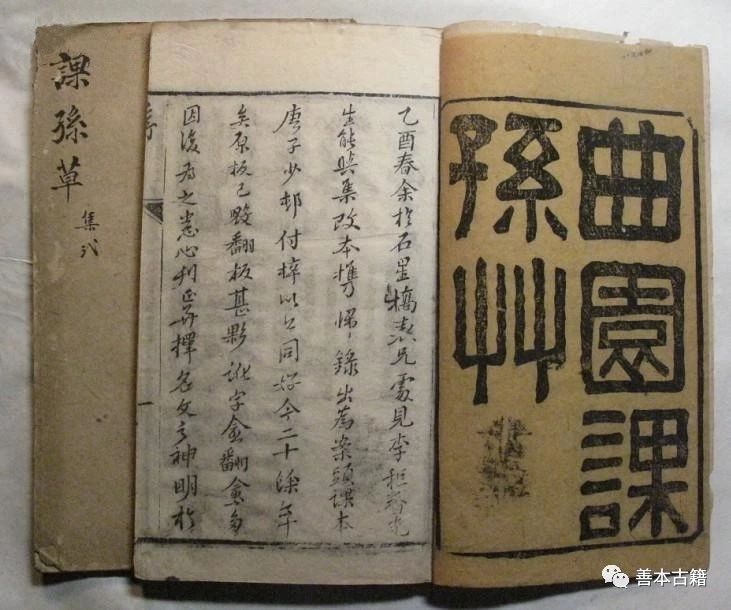 曲園課
孫艸
乙酉春余於石星橋素兄處見李秬香先
生能與集改本攜歸錄出為案頭課本
庚子少邨付梓以公同好今二十餘年
矣原板已毀翻板甚夥訛字愈翻愈多
因復為之悉心刊正並擇名文之神明於
課孫草
集弍
善本古籍